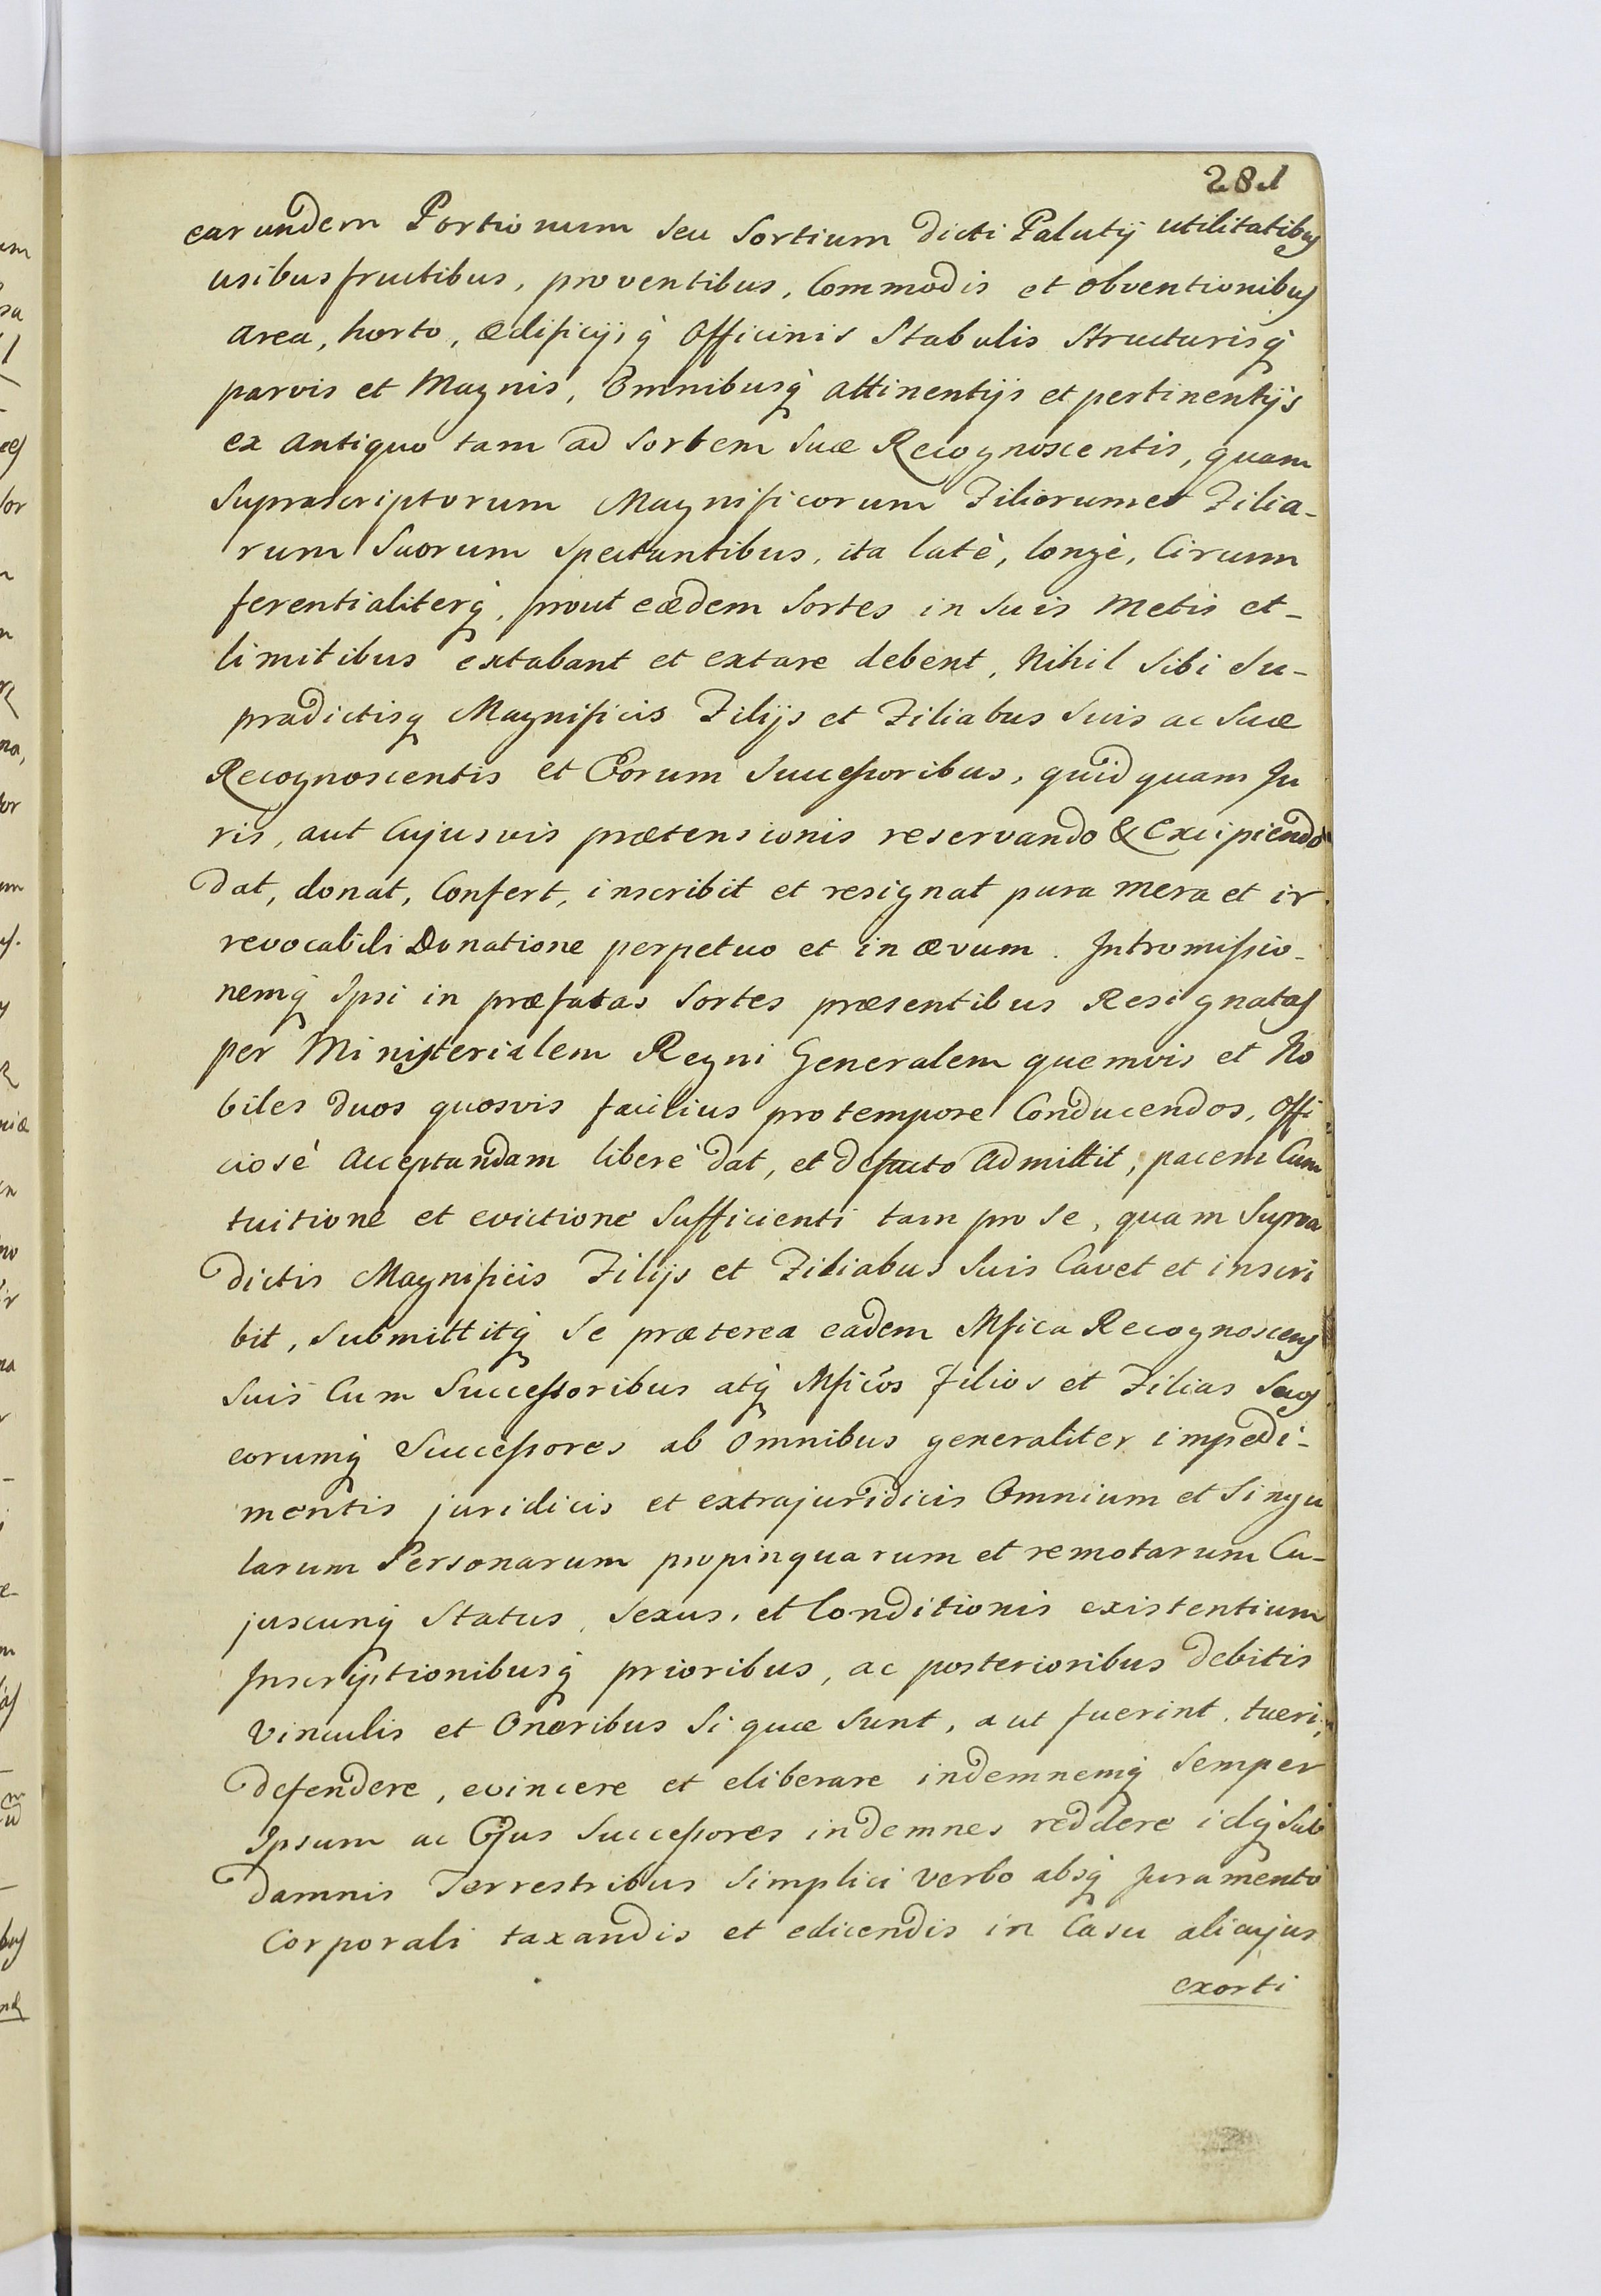 281
earundem Portionum seu Sortium dicti Palutij utilitatibus
usibus fructibus, proventibus, Commodis et obventionibus
area, horto, ædificijsq̀ Officinis Stabulis Structurisq̀
parvis et Magnis, Omnibusq̀ attinentijs et pertinentijs
ex antiquo tam ad Sortem Suæ Recognoscentis, quam
Suprascriptorum Magnificorum Filiorum et Filia-
rum Suorum Spectantibus, ita latè, longè, Circum
ferentialiterq̀, prout eædem Sortes in Suis Metis et-
limitibus extabant et extare debent, Nihil Sibi Su-
pradictisq̀ Magnificis Filijs et Filiabus Suis ac Suæ
Recognoscentis et Eorum Successoribus, quidquam Ju
ris, aut Cujusvis prætensionis reservando & Excipiendo
dat, donat, Confert, inscribit et resignat pura mera et ir
revocabili Donatione perpetuo et in ævum. Intromissio-
nemq̀ Ipsi in præfatas Sortes præsentibus Resignatas
per Ministerialem Regni Generalem quemvis et No
biles duos quosvis facilius pro tempore Conducendos, Offi
ciosè Acceptandam liberè dat, et defacto admittit, pacem Cum
tuitione et evictione Sufficienti tam pro Se, quam Supra
dictis Magnificis Filijs et Filiabus Suis Cavet et inscri
bit, Submittitq̀ Se præterea eadem Mfica Recognoscens
Suis Cum Successoribus atq̀ Mficos Filios et Filias Suas
eorumq̀ Successores ab Omnibus generaliter impedi-
mentis juridicis et extrajuridicis Omnium et Singu
larum Personarum propinquarum et remotarum Cu-
juscunq̀ Status, Sexus, et Conditionis existentium
Inscriptionibusq̀ prioribus, ac posterioribus debitis
Vinculis et Oneribus Si quæ Sunt, aut fuerint, tueri,
defendere, evincere et eliberare indemnemq̀ Semper
Ipsum ac Ejus Successores indemnes reddere idq̀ Sub
damnis Terrestribus Simplici Verbo absq̀ Juramento
Corporali taxandis et edicendis in Casu alicujus
exorti